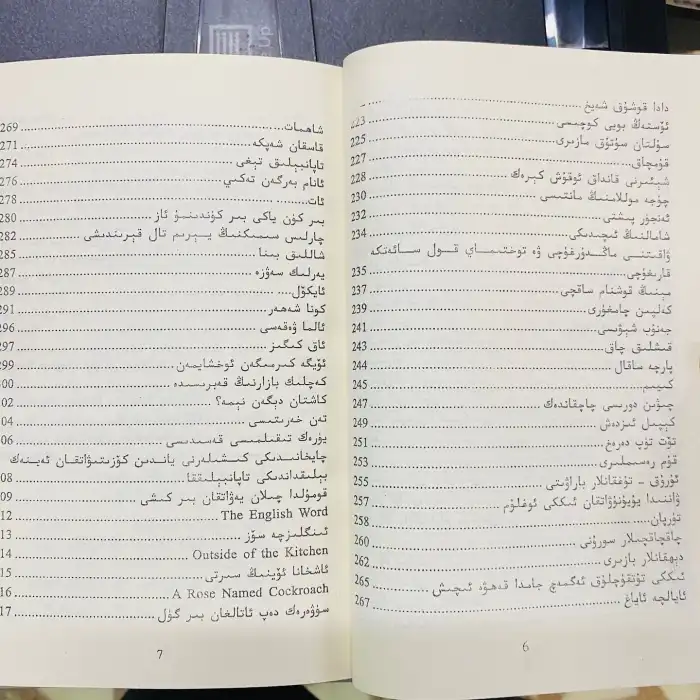 دادا قوشۇق شەيخ
ئۆستەڭ بويى كوچىسى 223
سۇلتان سۇتۇق مازىرى 225
قۇمچاق 227
شېئىرنى قانداق ئوقۇش كېرەك 228
چۈجە موللامنىڭ مانتىسى 230
ئەنجۈر پىشتى 232
شامالنىڭ ئىچىدىكى 234
ۋاقىتنى ماڭدۇرغۇچى ۋە توختىماي قول سائەتكە
قارىغۇچى 235
مېنىڭ قوشنام ساقچى 237
كەلپىن چامغۇرى 239
جەنۇب شېۋىسى 241
قىشلىق چاق 243
پارچە ساقال 244
كىيىم 245
چىۋىن دورىسى چاچقاندەك 247
كېپىل ئىزدەش 249
تۆت تۈپ دەرەخ 251
قۇم رەسىملىرى 253
ئۇرۇق - تۇغقانلار باراۋىتى 255
ۋاننىدا يۇيۇنۇۋاتقان ئىككى ئوغلۇم 257
تۇرپان 258
چاقچاقچىلار سورۇنى 260
دېھقانلار بازىرى 262
ئىككى تۇتقۇچلۇق ئەگمەچ جامدا قەھۋە ئىچىش 265
ئايالچە ئاياغ 267
6
شاھمات 269
قاسقان شەپكە 271
تاپانبېلىق تېغى 274
ئانام بەرگەن تەكىي 276
ئات 278
بىر كۈن ياكى بىر كۈندىنمۇ ئاز 280
چارلىس سىمىكنىڭ يېرىم تال قېرىندىشى 282
شاللىق بىنا 285
يەرلىك سەۋزە 287
ئايكۆل 289
كونا شەھەر 291
ئالما ۋەقەسى 296
ئاق كىگىز 297
ئۆيگە كىرمىگەن ئوخشايمەن 299
كەچلىك بازارنىڭ قەبرىسىدە 300
كاشتان دېگەن نېمە؟ 02
تەن خەرىتىسى 04
يۈرەك تىقىلمىسى قەسىدىسى 06
چايخانىدىكى كىشىلەرنى ياندىن كۆزىتىۋاتقان ئەينەك
بېلىقداندىكى تاپانبېلىققا 08
قومۇلدا چىلان يەۋاتقان بىر كىشى 09
The English Word 12
ئىنگلىزچە سۆز 13
Outside of the Kitchen 14
ئاشخانا ئۆينىڭ سىرتى 15
A Rose Named Cockroach 16
سۈۋەرەك دەپ ئاتالغان بىر گۈل 17
7